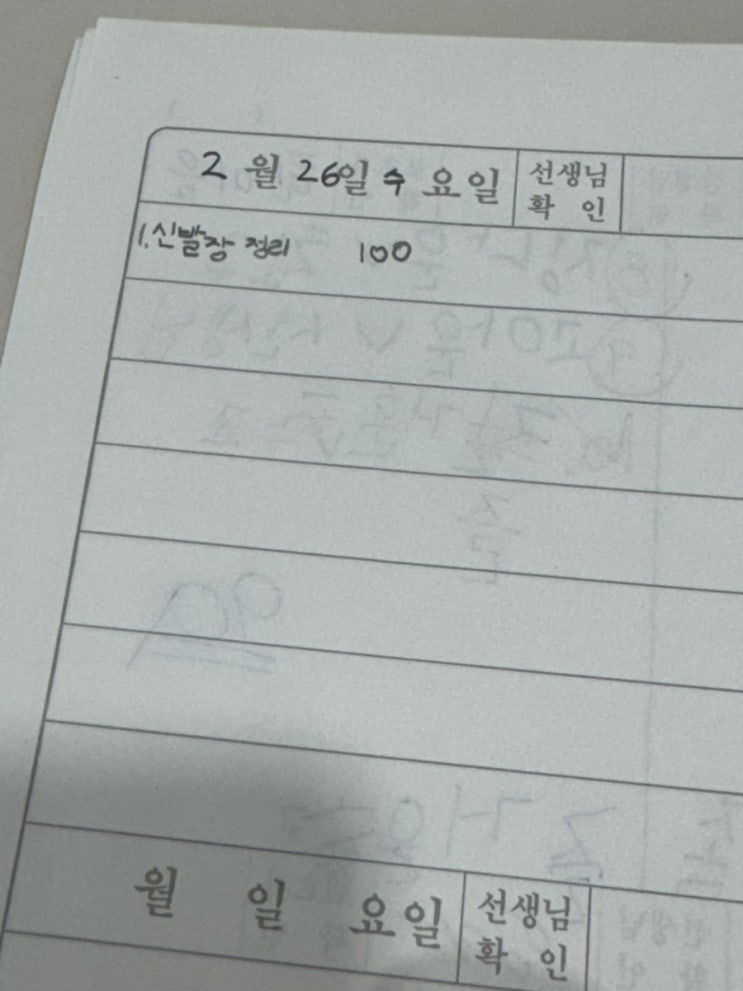 2월 26일 수요일 선생님 확인
1. 신발장 정리 100
월 일 요일 선생님 확인